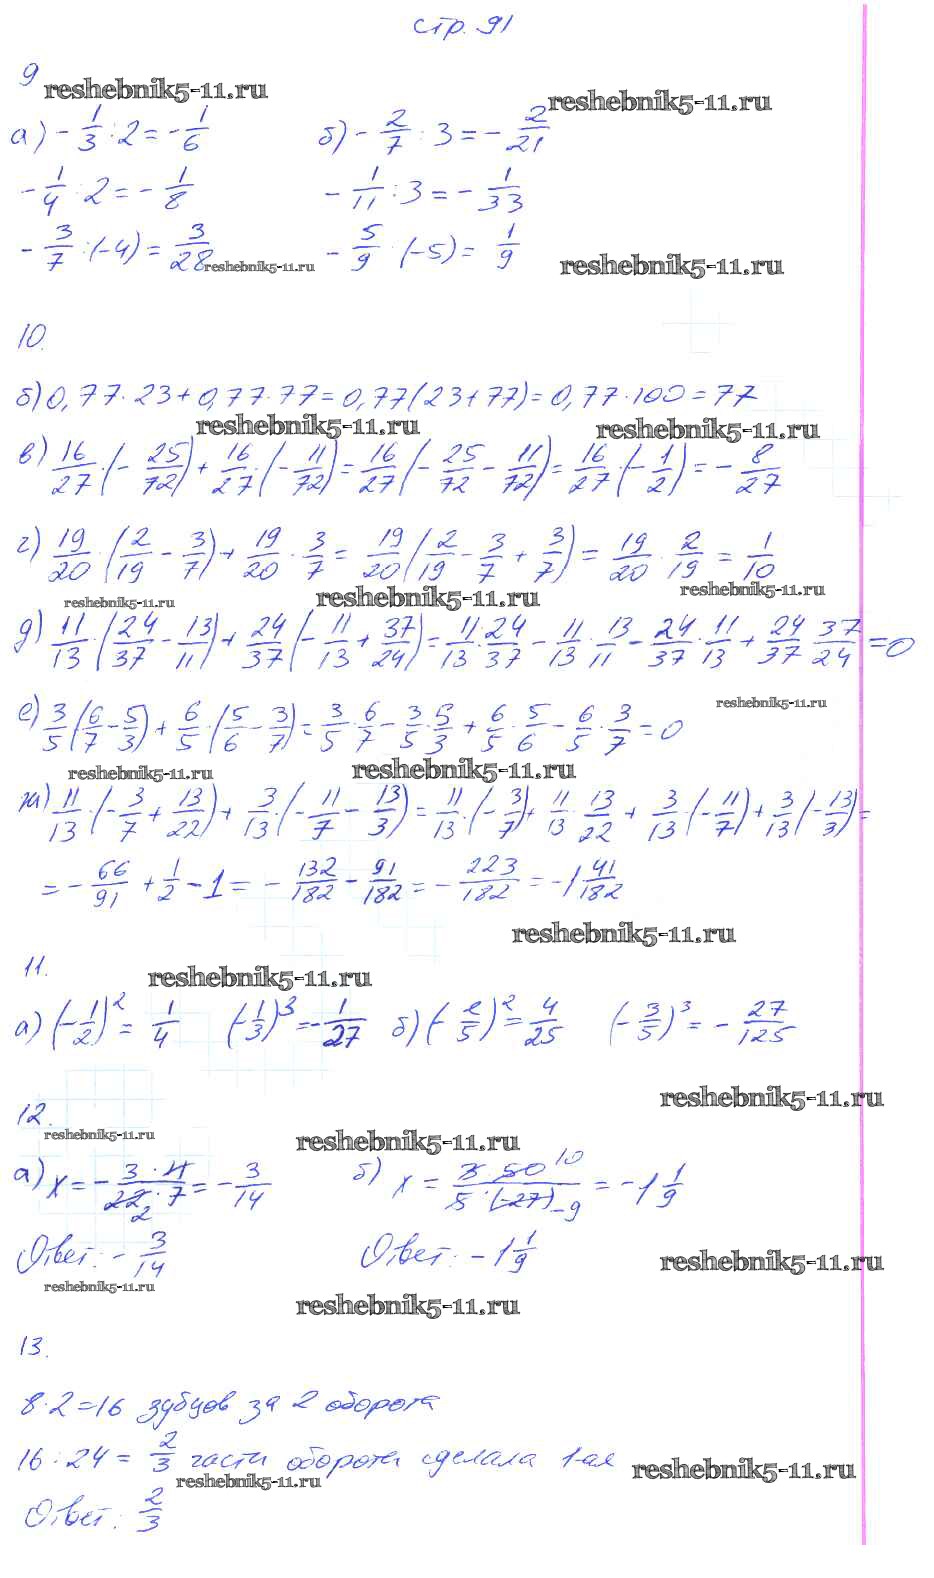 стр. 91
9 reshebnik5-11.ru reshebnik5-11.ru
а) - 1/3 : 2 = - 1/6 б) - 2/7 : 3 = - 2/21
- 1/4 : 2 = - 1/8 - 1/11 : 3 = - 1/33
- 3/7 : (-4) = 3/28 reshebnik5-11.ru - 5/9 : (-5) = 1/9 reshebnik5-11.ru
10.
б) 0,77 · 23 + 0,77 · 77 = 0,77 (23 + 77) = 0,77 · 100 = 77
reshebnik5-11.ru reshebnik5-11.ru
в) 16/27 · (- 25/72) + 16/27 · (- 11/72) = 16/27 (- 25/72 - 11/72) = 16/27 · (- 1/2) = - 8/27
г) 19/20 · (2/19 - 3/7) + 19/20 · 3/7 = 19/20 (2/19 - 3/7 + 3/7) = 19/20 · 2/19 = 1/10
reshebnik5-11.ru reshebnik5-11.ru reshebnik5-11.ru
д) 11/13 · (24/37 - 13/11) + 24/37 (- 11/13 + 37/24) = 11/13 · 24/37 - 11/13 · 13/11 - 24/37 · 11/13 + 24/37 · 37/24 = 0
reshebnik5-11.ru
е) 3/5 (6/7 - 5/3) + 6/5 · (5/6 - 3/7) = 3/5 · 6/7 - 3/5 · 5/3 + 6/5 · 5/6 - 6/5 · 3/7 = 0
reshebnik5-11.ru reshebnik5-11.ru
ж) 11/13 · (- 3/7 + 13/22) + 3/13 · (- 11/7 - 13/3) = 11/13 · (- 3/7) + 11/13 · 13/22 + 3/13 · (- 11/7) + 3/13 (- 13/3) =
= - 66/91 + 1/2 - 1 = - 132/182 - 91/182 = - 223/182 = -1 41/182
reshebnik5-11.ru
11. reshebnik5-11.ru
а) (- 1/2)² = 1/4 (- 1/3)³ = - 1/27 б) (- 2/5)² = 4/25 (- 3/5)³ = - 27/125
reshebnik5-11.ru
12.
reshebnik5-11.ru reshebnik5-11.ru
а) x = - 3 · 11/22 2 · 7 = - 3/14 б) x = 3 · 50 10/5 · (-27) -9 = -1 1/9
Ответ: - 3/14 Ответ: -1 1/9 reshebnik5-11.ru
reshebnik5-11.ru reshebnik5-11.ru
13.
8 · 2 = 16 зубцов за 2 оборота
16 : 24 = 2/3 части оборота сделала 1-ая reshebnik5-11.ru
reshebnik5-11.ru
Ответ: 2/3